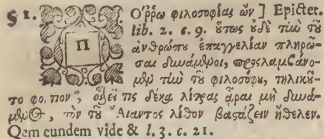 § 1. Ὄῤῥω φιλοσοφίας ὢν ] Epictet.
lib. 2. c. 9. ὅτως ἐδὲ τὼ τῦ
Π
ἀνθρώπυ ἐπαγγελίαν πληρῶ-
σαι δυνάμθροι, προσλαμϐάνο-
μϑμ τὼ τῦ φιλοσόφυ, τηλικῦ-
το φο. τίον, ὁρίεῖ τις δέκα λίτρας ἆραι μὴ δυνά-
μϑμΘ, τὸν τῦ Αἴαντος λίθον βαστάζειν ἤθελεν.
Qem eundem vide & l. 3. c. 21.